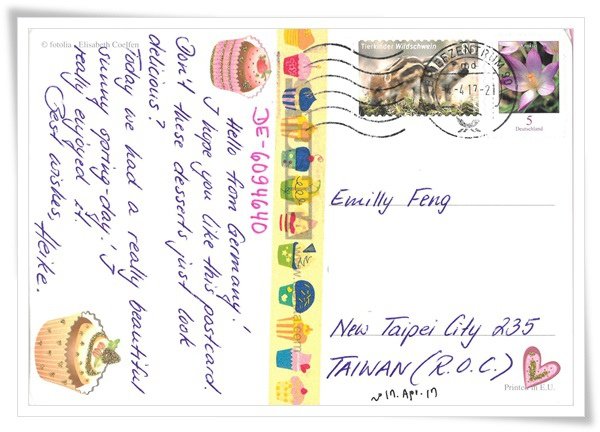 © fotolia - Elisabeth Coelfen
DE-6094640
Hello from Germany!
I hope you like this postcard.
Don't these desserts just look
delicious?
Today we had a really beautiful
sunny spring-day! I
really enjoyed it!
Best wishes,
Heike.
Tierkinder Wildschwein
BRIEFZENTRUM 90
md
-4.17-21
5
Deutschland
Emilly Feng
New Taipei City 235
TAIWAN (R.O.C.)
Printed in E.U.
17. Apr. 17